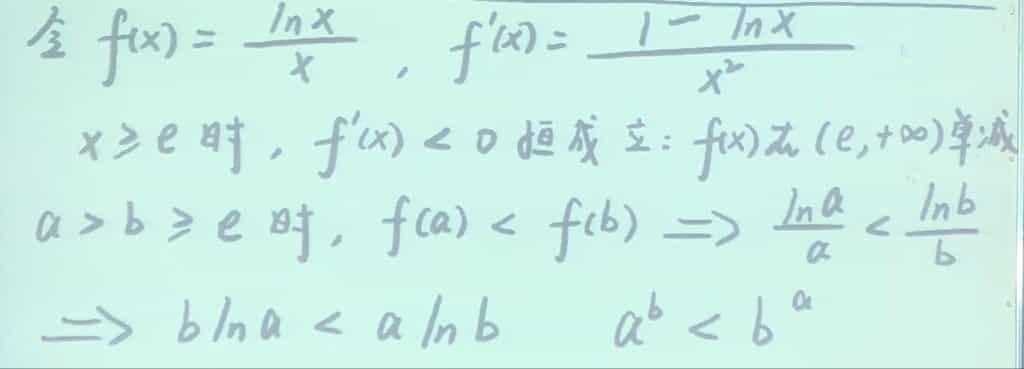 令 f(x) = \frac{\ln x}{x} , f'(x) = \frac{1 - \ln x}{x^2}
x ≥ e 时, f'(x) < 0 恒成立: f(x)在(e,+∞)单减
a > b ≥ e 时, f(a) < f(b) ⇒ \frac{\ln a}{a} < \frac{\ln b}{b}
⇒ b ln a < a ln b a^b < b^a